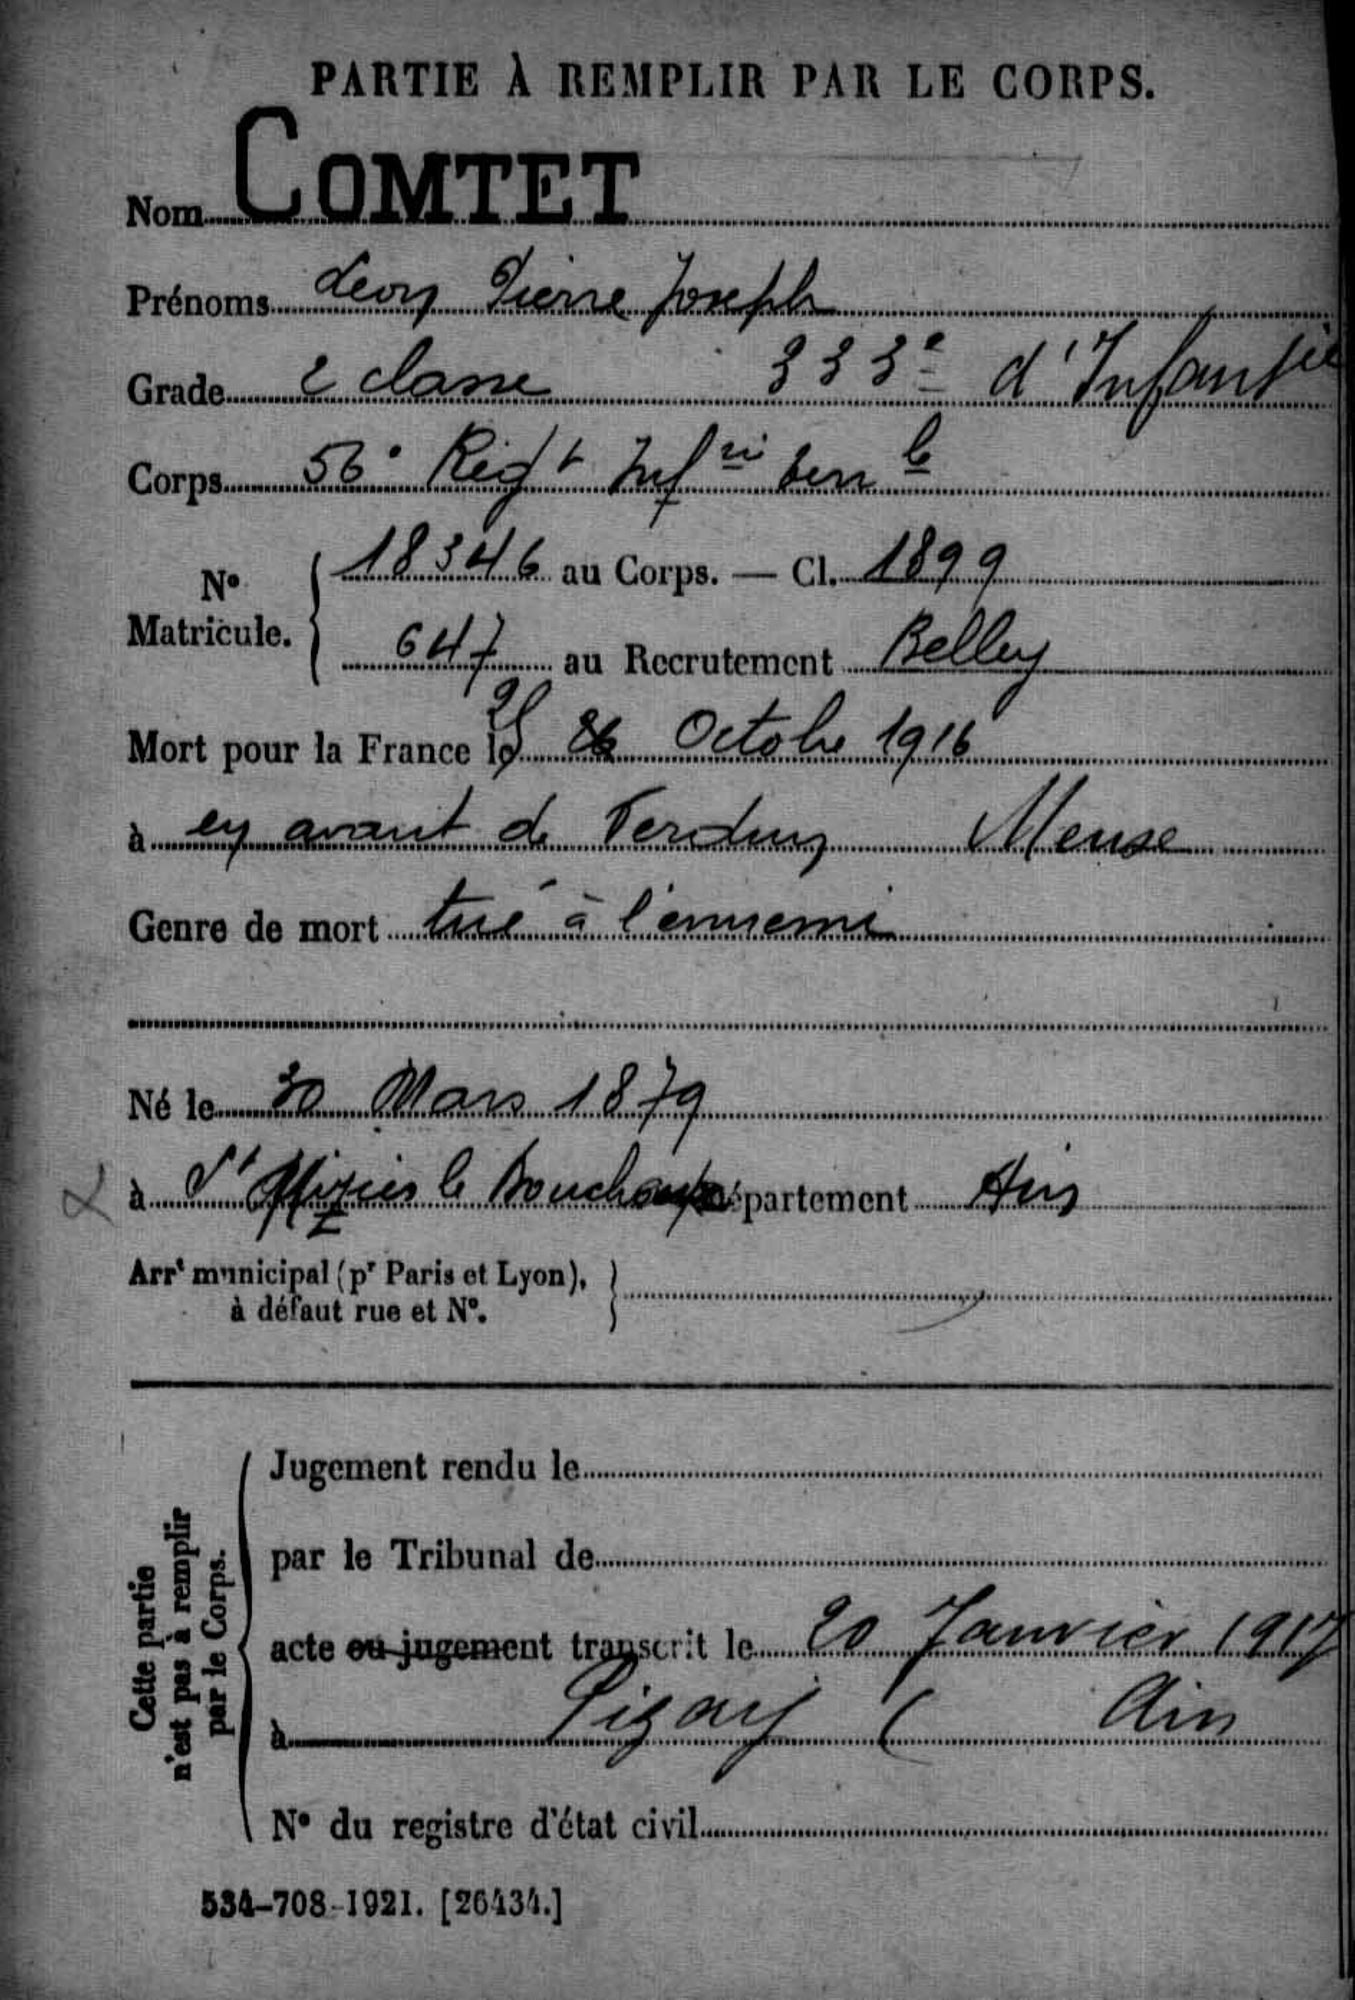 PARTIE À REMPLIR PAR LE CORPS.
Nom COMTET
Prénoms Leon Pierre Joseph
Grade 2 classe 333e d'Infanterie
Corps 56e Régt Infrie terrle
No Matricule. 18346 au Corps. — Cl. 1899
647 au Recrutement Belley
Mort pour la France le 25 26 Octobre 1916
à en avant de Verdun Meuse
Genre de mort tué à l'ennemi
Né le 30 Mars 1879
à St Nizier le Bouchoux Département Ain
Arrt municipal (pr Paris et Lyon),
à défaut rue et No.
Cette partie
n'est pas à remplir
par le Corps.
Jugement rendu le
par le Tribunal de
acte ou jugement transcrit le 20 Janvier 1917
à Pizay ( Ain
No du registre d'état civil
534-708-1921. [26434.]